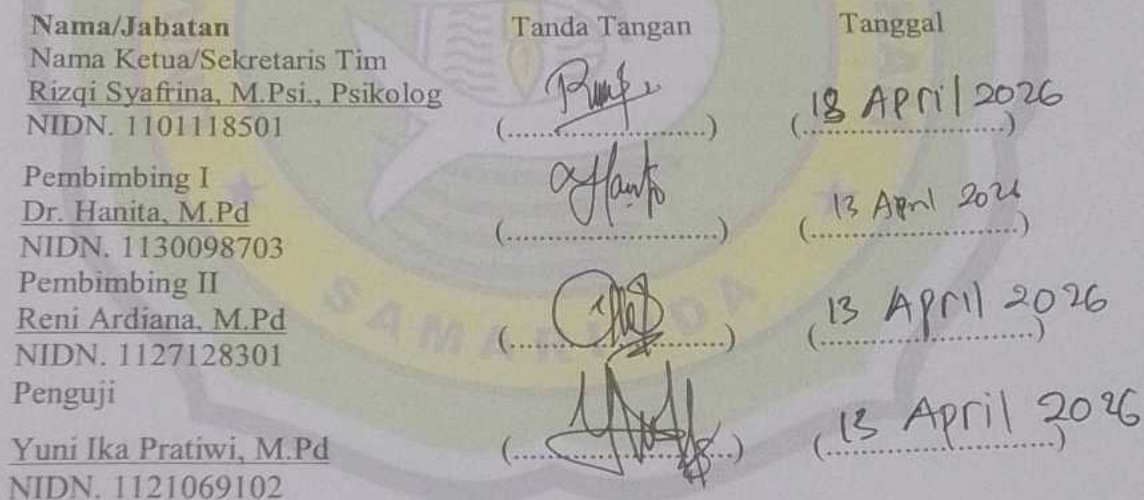 Nama/Jabatan Tanda Tangan Tanggal
Nama Ketua/Sekretaris Tim
Rizqi Syafrina, M.Psi., Psikolog
NIDN. 1101118501 (........................) (18 April 2026)
Pembimbing I
Dr. Hanita, M.Pd
NIDN. 1130098703 (........................) (13 April 2026)
Pembimbing II
Reni Ardiana, M.Pd (........................) (13 April 2026)
NIDN. 1127128301
Penguji
Yuni Ika Pratiwi, M.Pd (........................) (13 April 2026)
NIDN. 1121069102
SAMARINDA